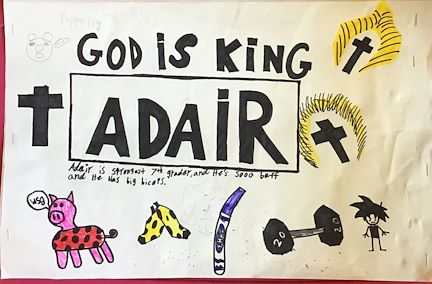 Peppa pig
GOD iS KING
ADAiR
Adair is strongest 7th grader, and He's sooo buff
and He Has big biceps.
wsg
20
20